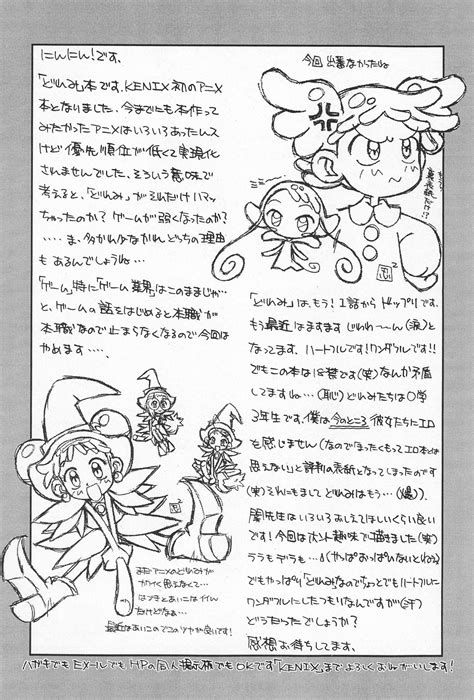 にんにん!です。
「どれみ」本です。KENIX初のアニメ
本となりました。今までにも本作って
みたかったアニメはいろいろあったんス
けど優先順位が低くて実現化
されませんでした。そういう意味で
考えると、「どれみ」がそれだけハマッ
ちゃったのか?ゲームが弱くなったのか?
‥‥ま、多かれ少なかれどっちの理由
もあるんでしょうね…
「ゲーム」特に「ゲーム業界」はこのままじゃ…
と、ゲームの話をはじめると本職が
本職なので止まらなくなるので今回は
やめます‥‥。
今回出番なかったね
もしかして
裏表紙だけ!?
「どれみ」は、もう!1話からドップリです。
もう最近はますますじわわ〜ん(涙)と
なってます、ハートフルです!ワンダフルです!!
でもこの本は18禁です(笑)なんか矛盾
してますね…(恥)どれみたちは○学
3年生です。僕は今のところ彼女たちにエロ
を感じません(なので「まったくもってエロ本とは
思えない」と評判の表紙となってしまったのです
(笑)それにもましてどれみはもう…(爆)).
闇先生はいろいろおしえてほしいくらい良い
です!今回はホント趣味で描きました(笑)
ララもデラも…(やっぱおっぱいないとねる)
でもやっぱり「どれみ」なのでちょっとでもハートフルに
ワンダフルにしたつもりなんですが(汗)
どうだったでしょうか?
感想お待ちしてます。
まだアニメのどれみが
かわいく思えなくて…
はづきとあいこはイイん
だけどなぁ…
最近はあいこのでこのツヤが良いです!
ハガキでもEメールでもHPの掲示板でもOKです「KENIX」までよろしくおねがいします!